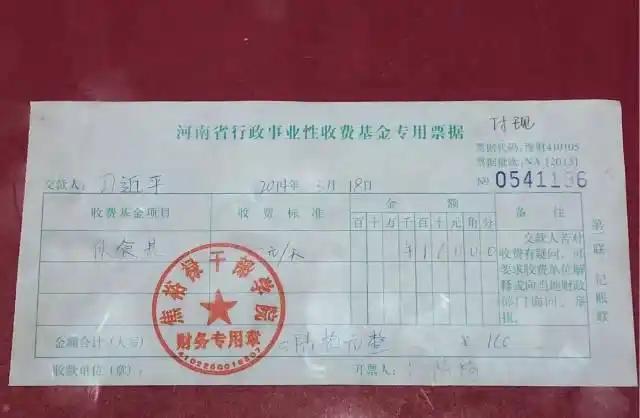 河南省行政事业性收费基金专用票据
付现
票据代码: 豫财410105
票据批次: NA [2013]
№
交款人: 习近平 2014年3月18日
收费基金项目 收费标准 金额 备注
百十万千百十元角分
伙食费 元/天
交款人若对
收费有疑问,可
要求收费单位解
释或向当地财政
部门询问、举
报。
记账联
焦裕禄干部学院
财务专用章
金额合计(大写) 陆拾元整 ¥ 160
收款单位(章): 开票人: